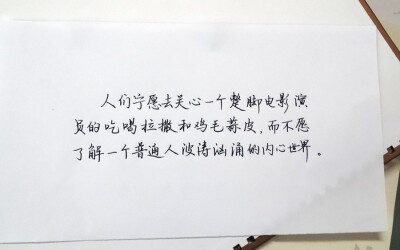 人们宁愿去关心一个蹩脚电影演
员的吃喝拉撒和鸡毛蒜皮，而不愿
了解一个普通人波涛汹涌的内心世界。